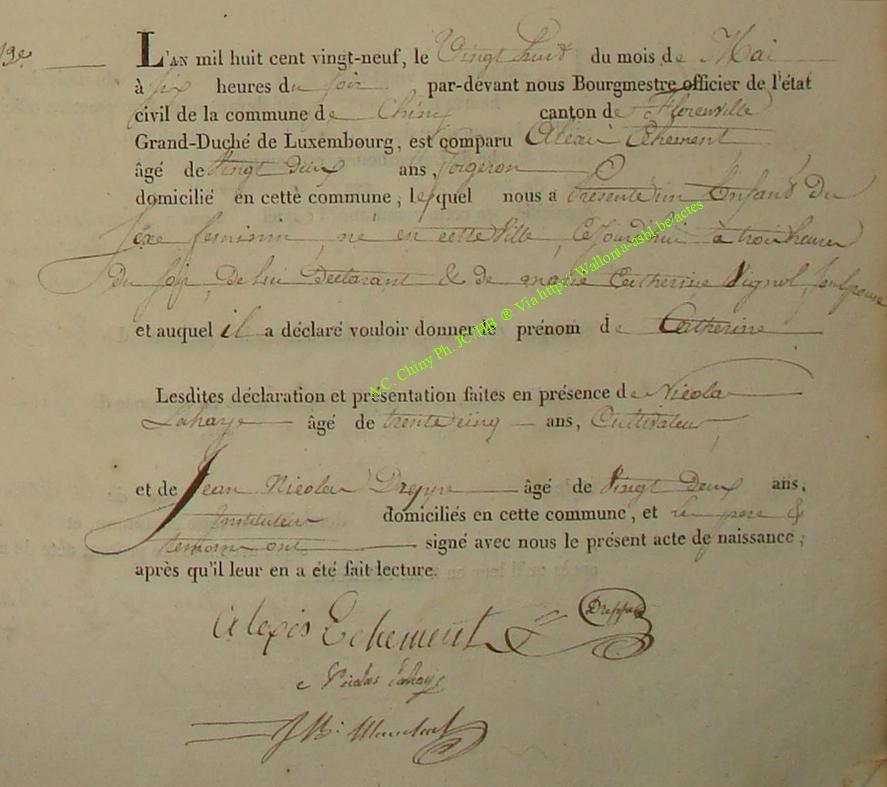 19e
L'AN mil huit cent vingt-neuf, le Vingt huit du mois de Mai
à six heures du soir par-devant nous Bourgmestre officier de l'état
civil de la commune de Chiny canton de Florenville
Grand-Duché de Luxembourg, est comparu Echement
âgé de vingt deux ans, forgeron
domicilié en cette commune, lequel nous a présenté un Enfant du
sexe feminin, né en cette Ville, Cejourdhui à trois heures
du soir, De lui Declarant & de Catherine Vignol, son Epouse
et auquel il a déclaré vouloir donner le prénom de Catherine
Lesdites déclaration et présentation faites en présence de Nicolas
Lahaye âgé de trente cinq ans, Cultivateur,
et de Jean Nicolas âgé de Vingt Deux ans,
Instituteur domiciliés en cette commune, et le pere &
temoins ont signé avec nous le présent acte de naissance,
après qu'il leur en a été fait lecture.
Alexis Echement
Nicolas Lahaye
A.C. Chiny Ph. JC HB ® Via http://Wallonia-asbl.be/actes